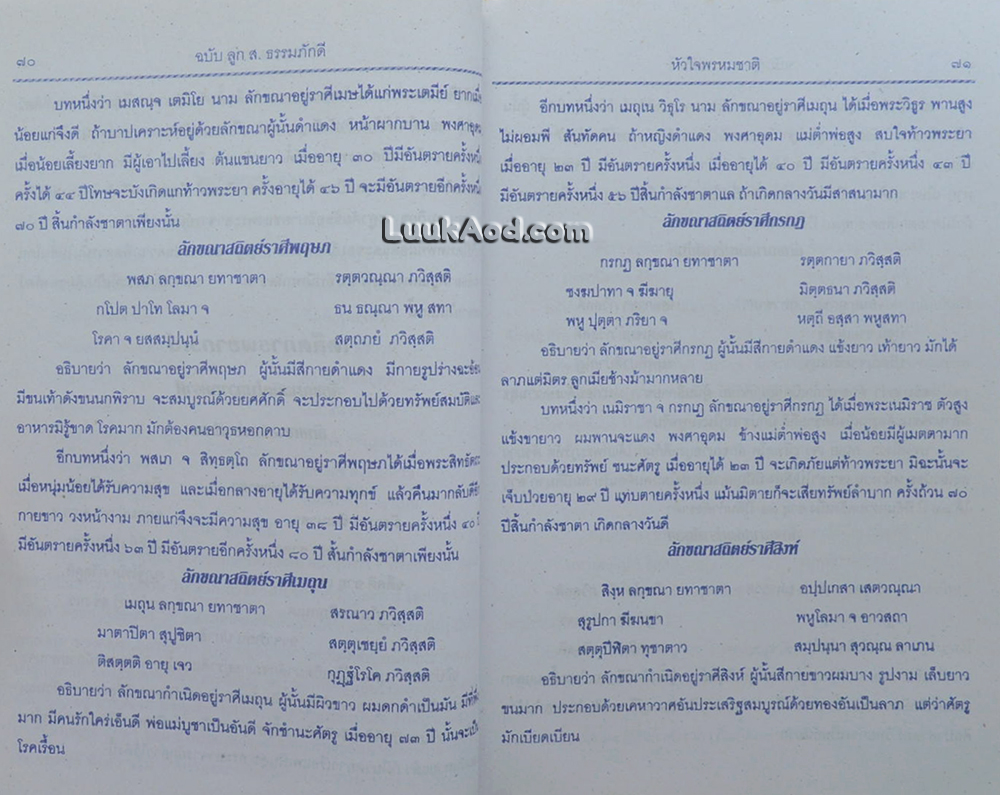 ๗๐
ฉบับ ลูก ส. ธรรมภักดี
บทหนึ่งว่า เมสญจ เตมิโย นาม ลักขณาอยู่ราศีเมษได้แก่พระเตมีย์ ยาก
น้อยแก่จึงดี ถ้าบาปเคราะห์อยู่ด้วยลักขณาผู้นั้นดำแดง หน้าผากบาน พงศาอุดม
เมื่อน้อยเลี้ยงยาก มีผู้เอาไปเลี้ยง ต้นแขนยาว เมื่ออายุ ๓๐ ปีมีอันตรายครั้งหนึ่ง
ครั้งได้ ๔๔ ปีโทษจะบังเกิดแก่ท้าวพระยา ครั้งอายุได้ ๔๖ ปี จะมีอันตรายอีกครั้งหนึ่ง
๗๐ ปี สิ้นกำลังชาตาเพียงนั้น
ลักขณาสถิตย์ราศีพฤษภ
พสภ ลกฺขณา ยทาชาตา รตฺตวณฺณา ภวิสฺสติ
กโปต ปาโท โลมา จ ธน ธณฺณา พหู สทา
โรคา จ ยสสมฺปนฺนํ สตฺถภยํ ภวิสฺสติ
อธิบายว่า ลักขณาอยู่ราศีพฤษภ ผู้นั้นมีสีกายดำแดง มีกายรูปร่างฉะอ้อน
มีขนเท้าดังขนนกพิราบ จะสมบูรณ์ด้วยยศศักดิ์ จะประกอบไปด้วยทรัพย์สมบัติและ
อาหารมิรู้ขาด โรคมาก มักต้องคนอาวุธหอกดาบ
อีกบทหนึ่งว่า พสเภ จ สิทฺธตฺโถ ลักขณาอยู่ราศีพฤษภได้เมื่อพระสิทธัตถ
เมื่อหนุ่มน้อยได้รับความสุข และเมื่อกลางอายุได้รับความทุกข์ แล้วคืนมากลับดี
กายขาว วงหน้างาม ภายแก่จึงจะมีความสุข อายุ ๓๘ ปี มีอันตรายครั้งหนึ่ง ๔๐ ปี
มีอันตรายครั้งหนึ่ง ๖๓ ปี มีอันตรายอีกครั้งหนึ่ง ๘๐ ปี สิ้นกำลังชาตาเพียงนั้น
ลักขณาสถิตย์ราศีเมถุน
เมถุน ลกฺขณา ยทาชาตา สรณาว ภวิสฺสติ
มาตาปิตา สุปูชิตา สตฺตุเชยฺยํ ภวิสฺสติ
ติสตฺตติ อายุ เจว กุฏฺฐํโรโค ภวิสฺสติ
อธิบายว่า ลักขณากำเนิดอยู่ราศีเมถุน ผู้นั้นมีผิวขาว ผมดกดำเป็นมัน
มาก มีคนรักใคร่เอ็นดี พ่อแม่บูชาเป็นอันดี จักชำนะศัตรู เมื่ออายุ ๗๓ ปี นั้นจะเป็น
โรคเรื้อน
หัวใจพรหมชาติ
๗๑
อีกบทหนึ่งว่า เมถุเน วิธุโร นาม ลักขณาอยู่ราศีเมถุน ได้เมื่อพระวิธูร พานสูง
ไม่ผอมพี สันทัดคน ถ้าหญิงดำแดง พงศาอุดม แม่ต่ำพ่อสูง สบใจท้าวพระยา
เมื่ออายุ ๒๓ ปี มีอันตรายครั้งหนึ่ง เมื่ออายุได้ ๔๐ ปี มีอันตรายครั้งหนึ่ง ๔๓ ปี
มีอันตรายครั้งหนึ่ง ๕๖ ปีสิ้นกำลังชาตาแล ถ้าเกิดกลางวันมีสาสนามาก
LuukAod.com
ลักขณาสถิตย์ราศีกรกฎ
กรกฎ ลกฺขณา ยทาชาตา รตฺตกายา ภวิสฺสติ
ชงฆปาทา จ ฆีฆายุ มิตฺตธนา ภวิสฺสติ
พหู ปุตฺตา ภริยา จ หตฺถี อสฺสา พหูสทา
อธิบายว่า ลักขณาอยู่ราศีกรกฎ ผู้นั้นมีสีกายดำแดง แข้งยาว เท้ายาว มักได้
ลาภแต่มิตร ลูกเมียช้างม้ามากหลาย
บทหนึ่งว่า เนมิราชา จ กรกเฎ ลักขณาอยู่ราศีกรกฎ ได้เมื่อพระเนมิราช ตัวสูง
แข้งขายาว ผมพานจะแดง พงศาอุดม ข้างแม่ต่ำพ่อสูง เมื่อน้อยมีผู้เมตตามาก
ประกอบด้วยทรัพย์ ชนะศัตรู เมื่ออายุได้ ๒๓ ปี จะเกิดภัยแต่ท้าวพระยา มิฉะนั้นจะ
เจ็บป่วยอายุ ๒๙ ปี แทบตายครั้งหนึ่ง แม้นมิตายก็จะเสียทรัพย์ลำบาก ครั้งถ้วน ๗๐
ปีสิ้นกำลังชาตา เกิดกลางวันดี
ลักขณาสถิตย์ราศีสิงห์
สิงฺห ลกฺขณา ยทาชาตา อปฺปเกสา เสตวณฺณา
สุรูปกา ฆีฆนขา พหูโลมา จ อาวสถา
สตฺตุปีฬิตา ทุชาตาว สมฺปนฺนา สุวณฺณ ลาเภน
อธิบายว่า ลักขณากำเนิดอยู่ราศีสิงห์ ผู้นั้นสีกายขาวผมบาง รูปงาม เล็บยาว
ขนมาก ประกอบด้วยเคหาวาศอันประเสริฐสมบูรณ์ด้วยทองอันเป็นลาภ แต่ว่าศัตรู
มักเบียดเบียน